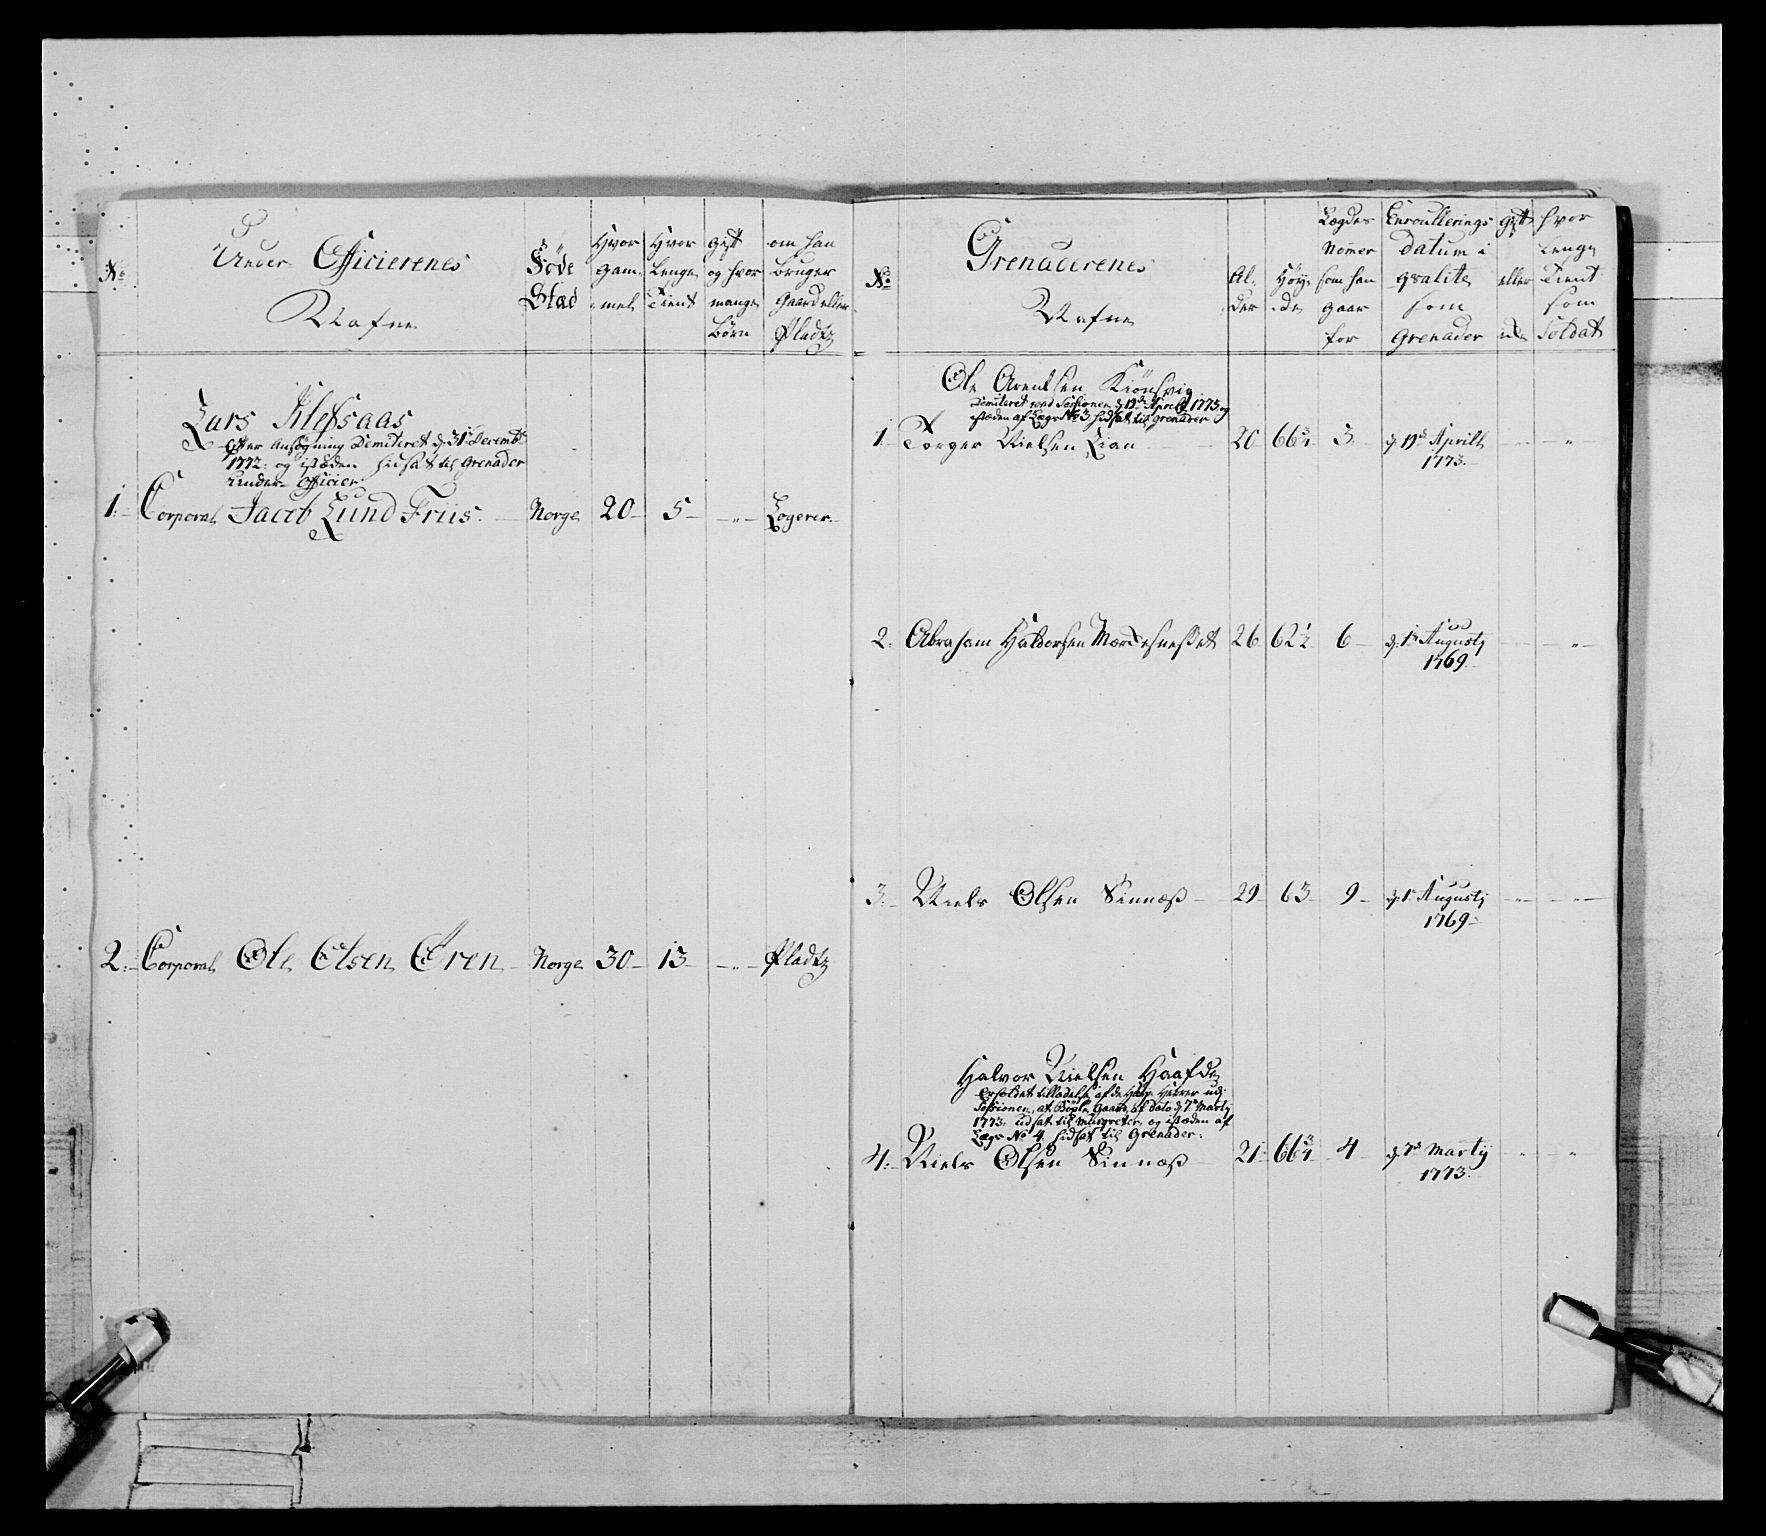 No
Under Officierenes
Nafne
Föde
Stad
Hvor
gam-
mel
Hvor
Lenge
Tient
gift
og hvor
mange
börn
om han
bruger
Gaard eller
Pladtz
Lars Klefsaas
Efter Ansögning Demiteret d: 31 Decembr
1772: og isteden hidsat til Grenader
Under Officier
1. Corporal Jacob Lund Friis. Norge 20 5 " Logerer.
2. Corporal Ole Olsen Ören Norge 30 13 " Pladtz
No
Grenaderenes
Nafne
Al-
der
Höy-
de
Lægdes
Nomer
som han
gaar
for
Enroullerings
datum i
qvalite
som
Grenader
gift
eller
ei
hvor
Lenge
Tient
som
Soldat
Ole Arentsen Kiönsvig
Demiteret ved Sessionen d 19de Aprily 1773 og
isteden af Lægs No 3 hidsat til Grenader
1 Torger Nielsen Lian 20 66 3/4 3 d 19de Aprilly "
1773.
2. Abraham Haldorsen 26 62 1/2 6 d: 1te Augusty "
1769
3. Niels Olsen Sinnæss 29 63 9 d: 1te Augusty "
1769
Halvor Nielsen Haafde
Erholdet tilladelse af de Höye Herrer udj
Sessionen, at Gaard, af dato d 7de Marty
1773. udsat til Musqveter, og isteden af
Lægs No 4 hidsat til Grenader.
4. Niels Olsen Sinnæss 21 66 3/4 4 d 7de Marty "
1773.